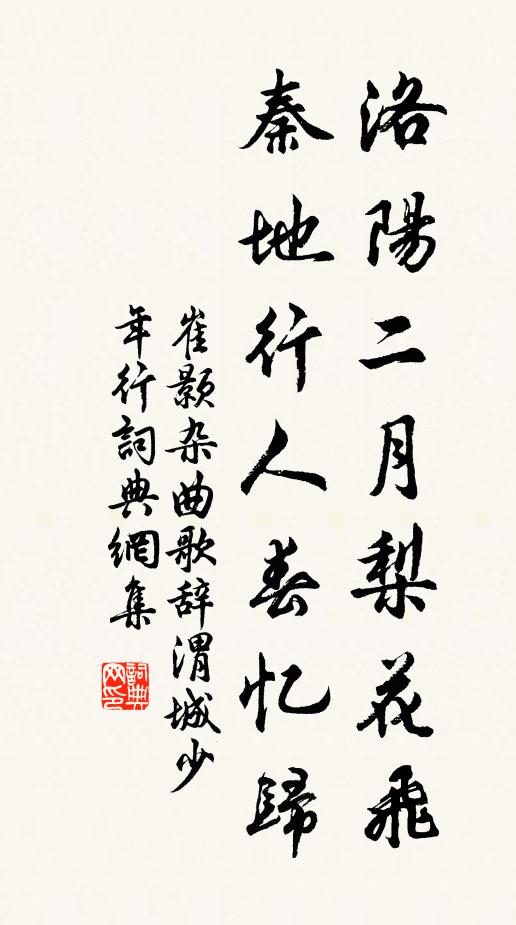 洛陽二月梨花飛
秦地行人春忆歸
崔颢杂曲歌辞渭城少
年行詞典網集
詞典
网印